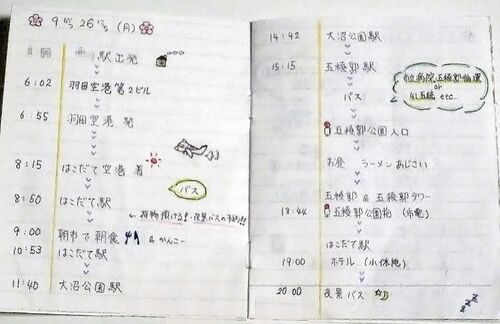 9がつ26にち(月)
駅出発
6:02 羽田空港第2ビル
6:55 羽田空港 発
8:15 はこだて空港 着
バス
8:50 はこだて駅
← 荷物預ける!・夜景バスの予約!!
9:00 朝市で朝食 & かんこー
10:53 はこだて駅
11:40 大沼公園駅
14:42 大沼公園駅
15:15 五稜郭駅
バス
五稜郭
or
五稜 etc...
五稜郭公園入口
お昼 ラーメンあじさい
五稜郭 & 五稜郭タワー
18:44 五稜郭公園前(市電)
はこだて駅
19:00 ホテル(小休憩)
20:00 夜景バス